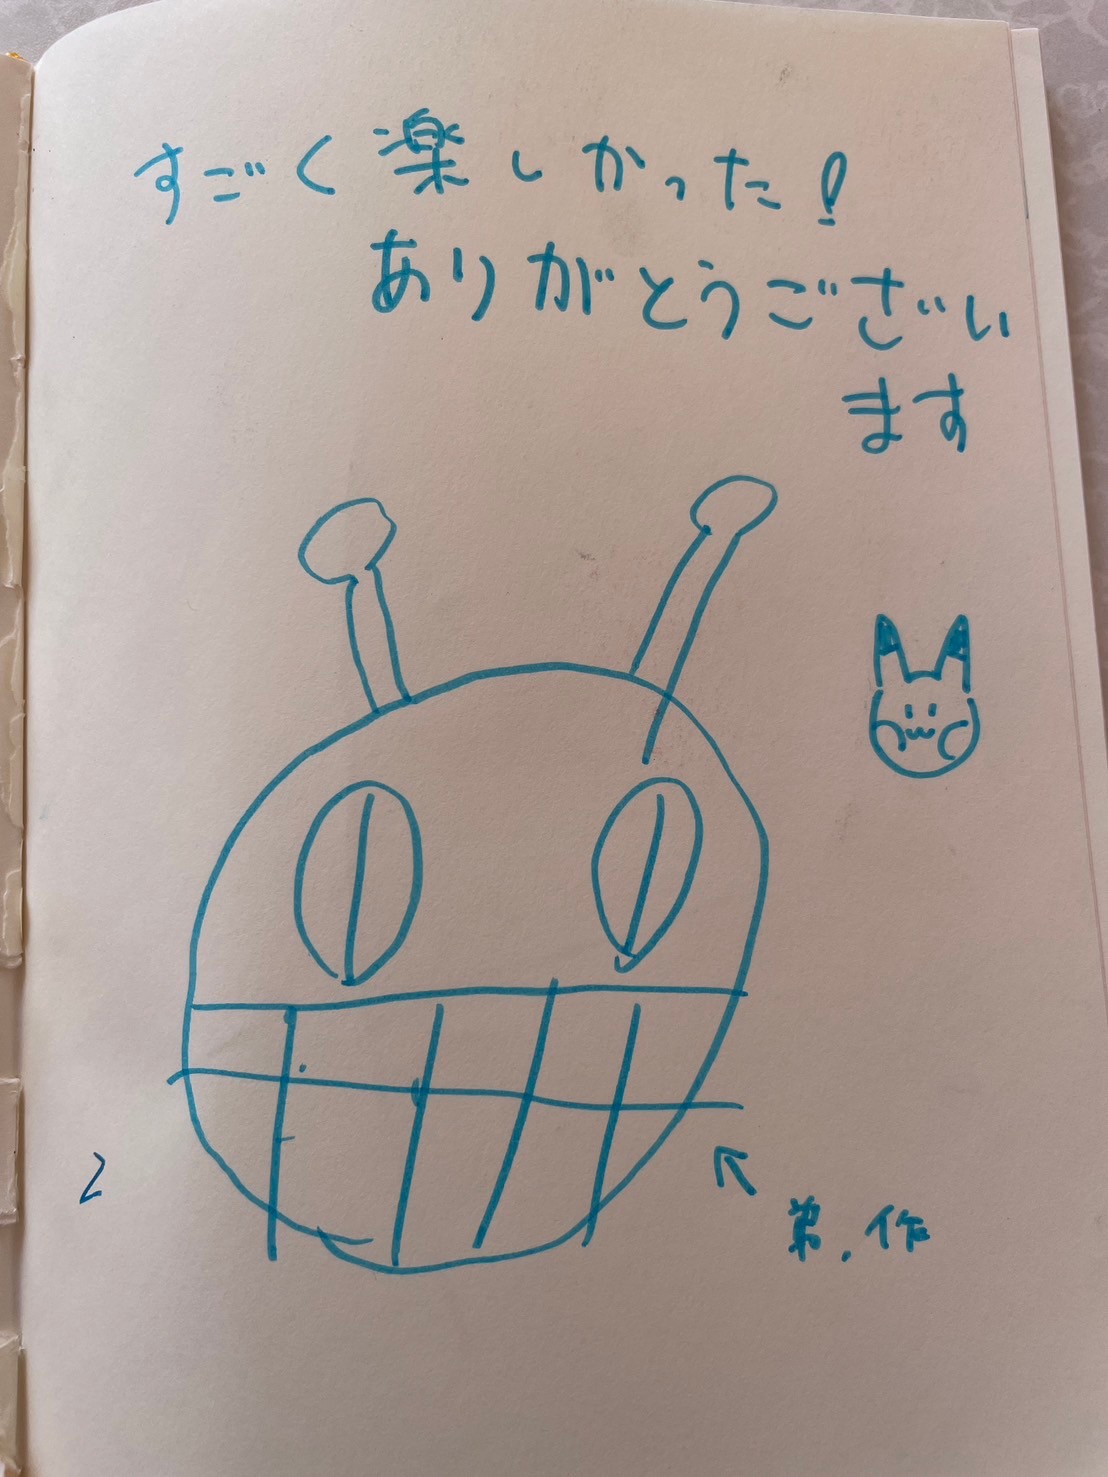 すごく楽しかった!
ありがとうござい
ます
弟.作